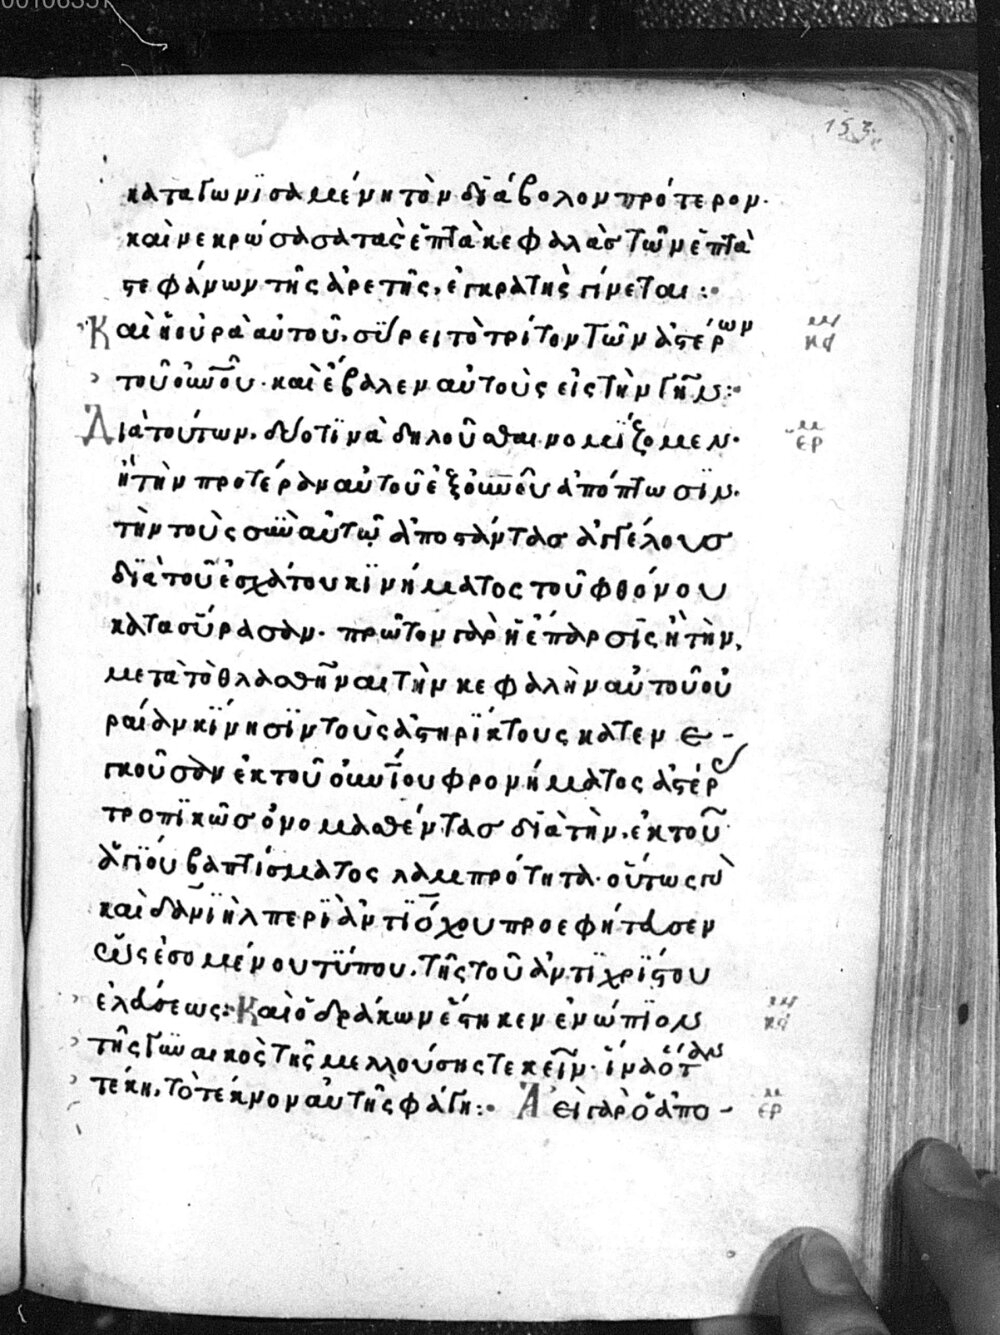 00106351
153
καταγωνϊσαμένη τὸν δϊάβολον πρότερον·
καὶ νεκρώσασα τὰς ἑπτὰ κεφαλὰσ τῶν ἑπτὰ
στεφάνων τῆς ἀρετῆς, ἐγκρατὴς γίνεται :·
Καὶ ἡ οὐρὰ αὐτοῦ, σύρει τὸ τρίτον τῶν ἀστέρων
κει
τοῦ οὐνοῦ· καὶ ἔβαλεν αὐτοὺς εἰς τὴν γῆν :·
Διὰ τούτων, δύο τϊνὰ δηλοῦσθαι νομΐζομεν·
ερ
ἢ τὴν προτέραν αὐτοῦ ἐξ οὐνοῦ ἀπόπτωσϊν·
τὴν τοὺς σὺν αὐτῷ ἀποστάντασ ἀγγέλουσ
δϊὰ τοῦ ἐσχάτου κϊνήματος τοῦ φθόνου
κατασύρασαν· πρῶτον γὰρ ἡ ἔπαρσϊς ἢ τὴν,
μετὰ τὸ θλασθῆναι τὴν κεφαλὴν αὐτοῦ οὐ
ραίαν κΐνησϊν τοὺς ἀστηρΐκτους κατενε-
γκοῦσαν ἐκ τοῦ οὐνΐου φρονήματος ἀστέρ
τροπϊκῶσ ὀνομασθέντασ δϊὰ τὴν, ἐκ τοῦ
ἁγΐου βαπτίσματος λαμπρότητα· οὕτως γὰρ
καὶ δανϊὴλ περὶ ἀντϊόχου προεφήτευσεν
ὡς ἐσομένου τύπου, τῆς τοῦ ἀντϊχρΐστου
ἐλεύσεως :· Καὶ ὁ δράκων ἕστηκεν ἐνώπϊον
κει
τῆς γυναικὸς τῆς μελλούσης τεκεῖν· ἵνα ὅταν
τέκη, τὸ τέκνον αὐτῆς φάγη :· Ἀεὶ γὰρ ὁ ἀπο-
ερ